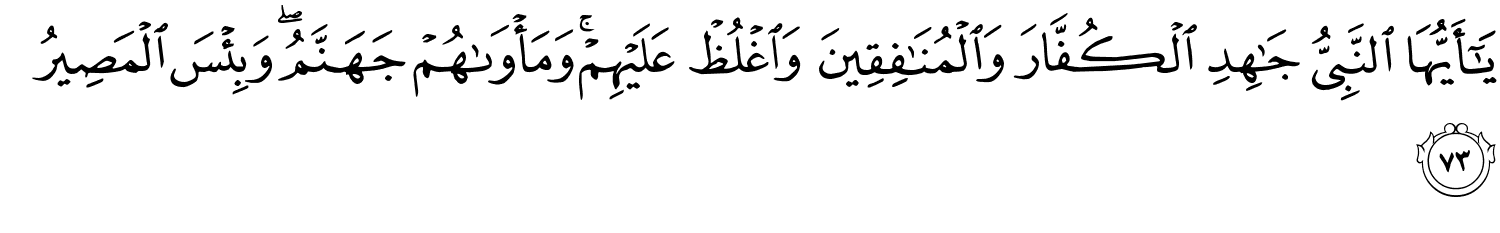 يَٰٓأَيُّهَا ٱلنَّبِىُّ جَٰهِدِ ٱلْكُفَّارَ وَٱلْمُنَٰفِقِينَ وَٱغْلُظْ عَلَيْهِمْۚ وَمَأْوَىٰهُمْ جَهَنَّمُۖ وَبِئْسَ ٱلْمَصِيرُ
٧٣